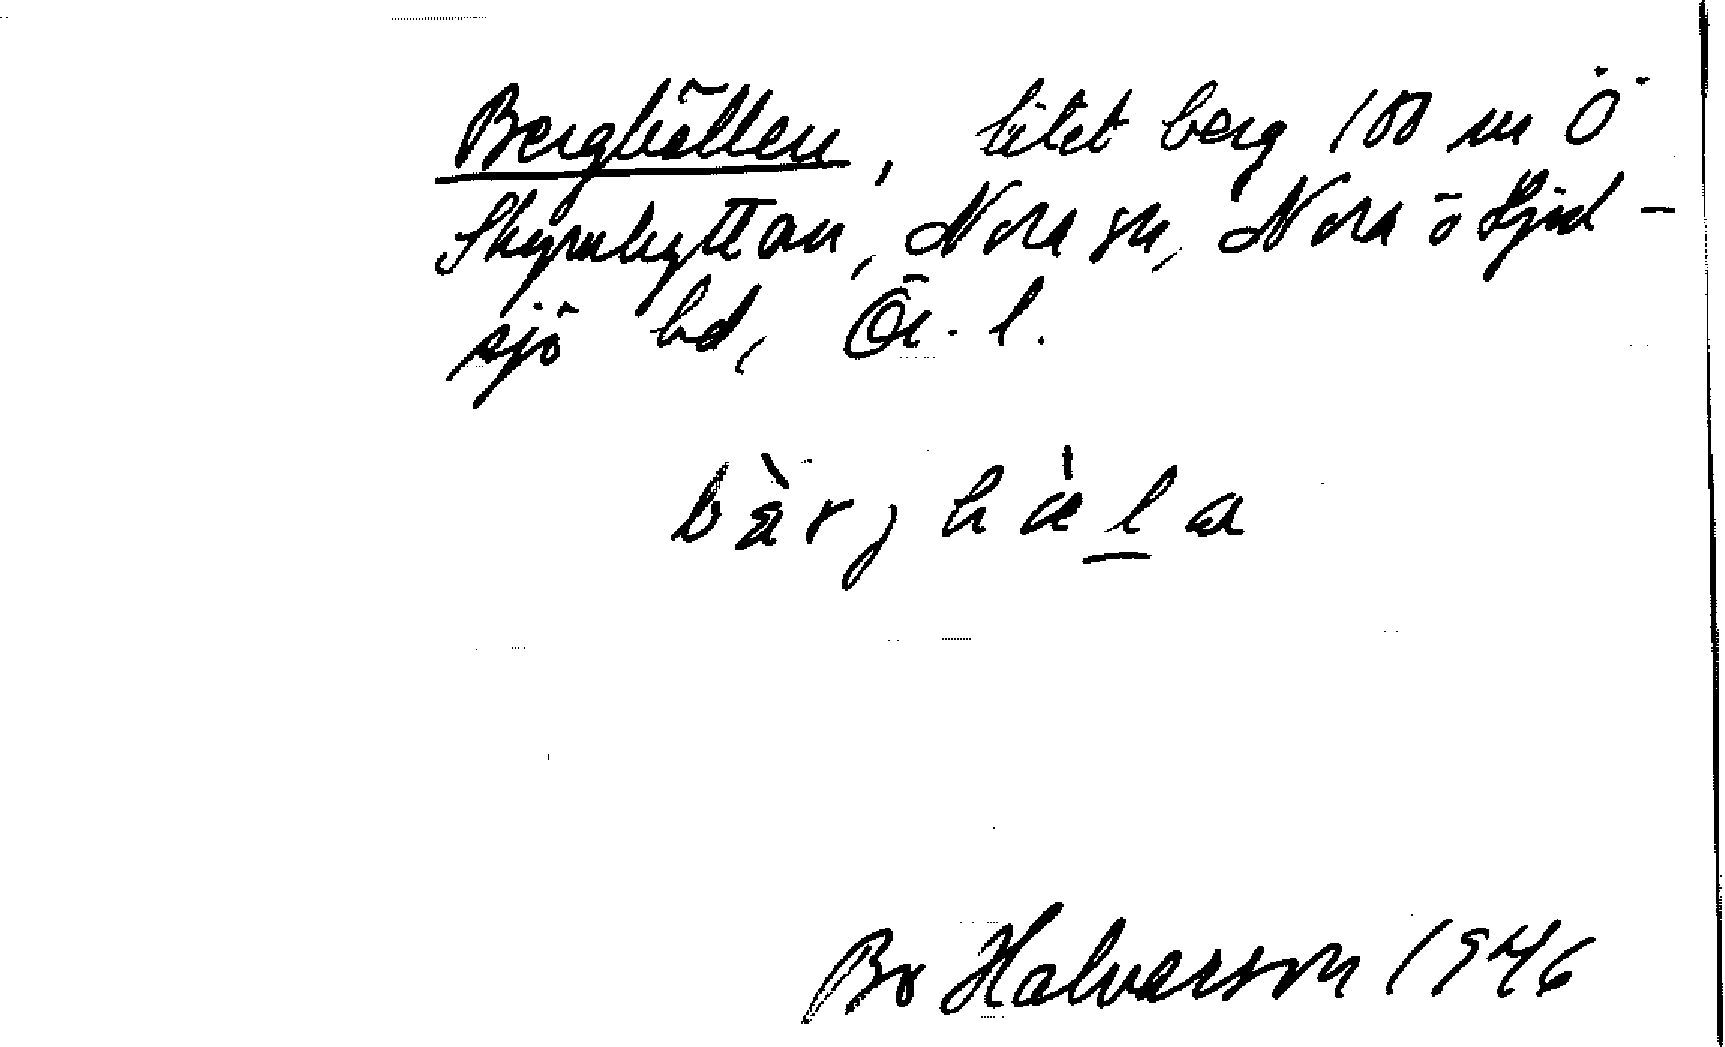 Berghällen, litet berg 100 m Ö
Skyrnhyttan, Nora sn, Nora o Hjul-
sjö bd, Ör. l.
bàrjhàla
Bo Halvarson 1946